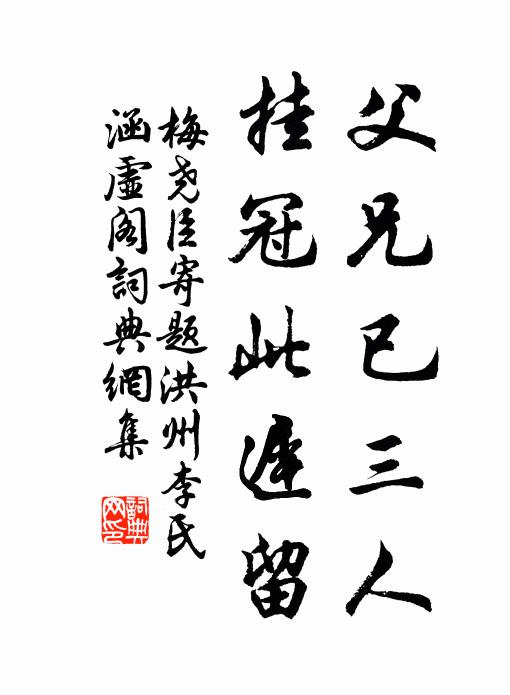 父兄已三人
挂冠此遲留
梅尧臣寄题洪州李氏
涵虛阁詞典網集
詞典
网印